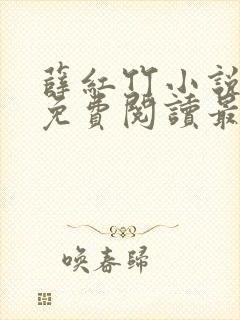 薛紅竹小說
免費閱讀最
喚春歸